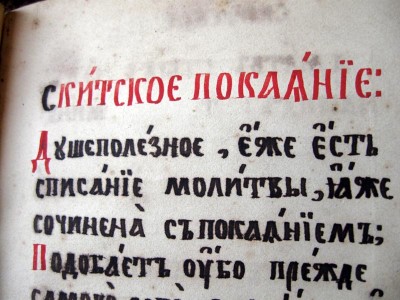 Ски́тское пока́ѧнїе:
Дꙋшеполе́зное, є҆́же є҆́сть
списа́нїе моли́твы, ꙗ҆́же
сочинена̀ съ пока́ѧнїемъ;
Подоба́етъ оу҆́бо пре́жде